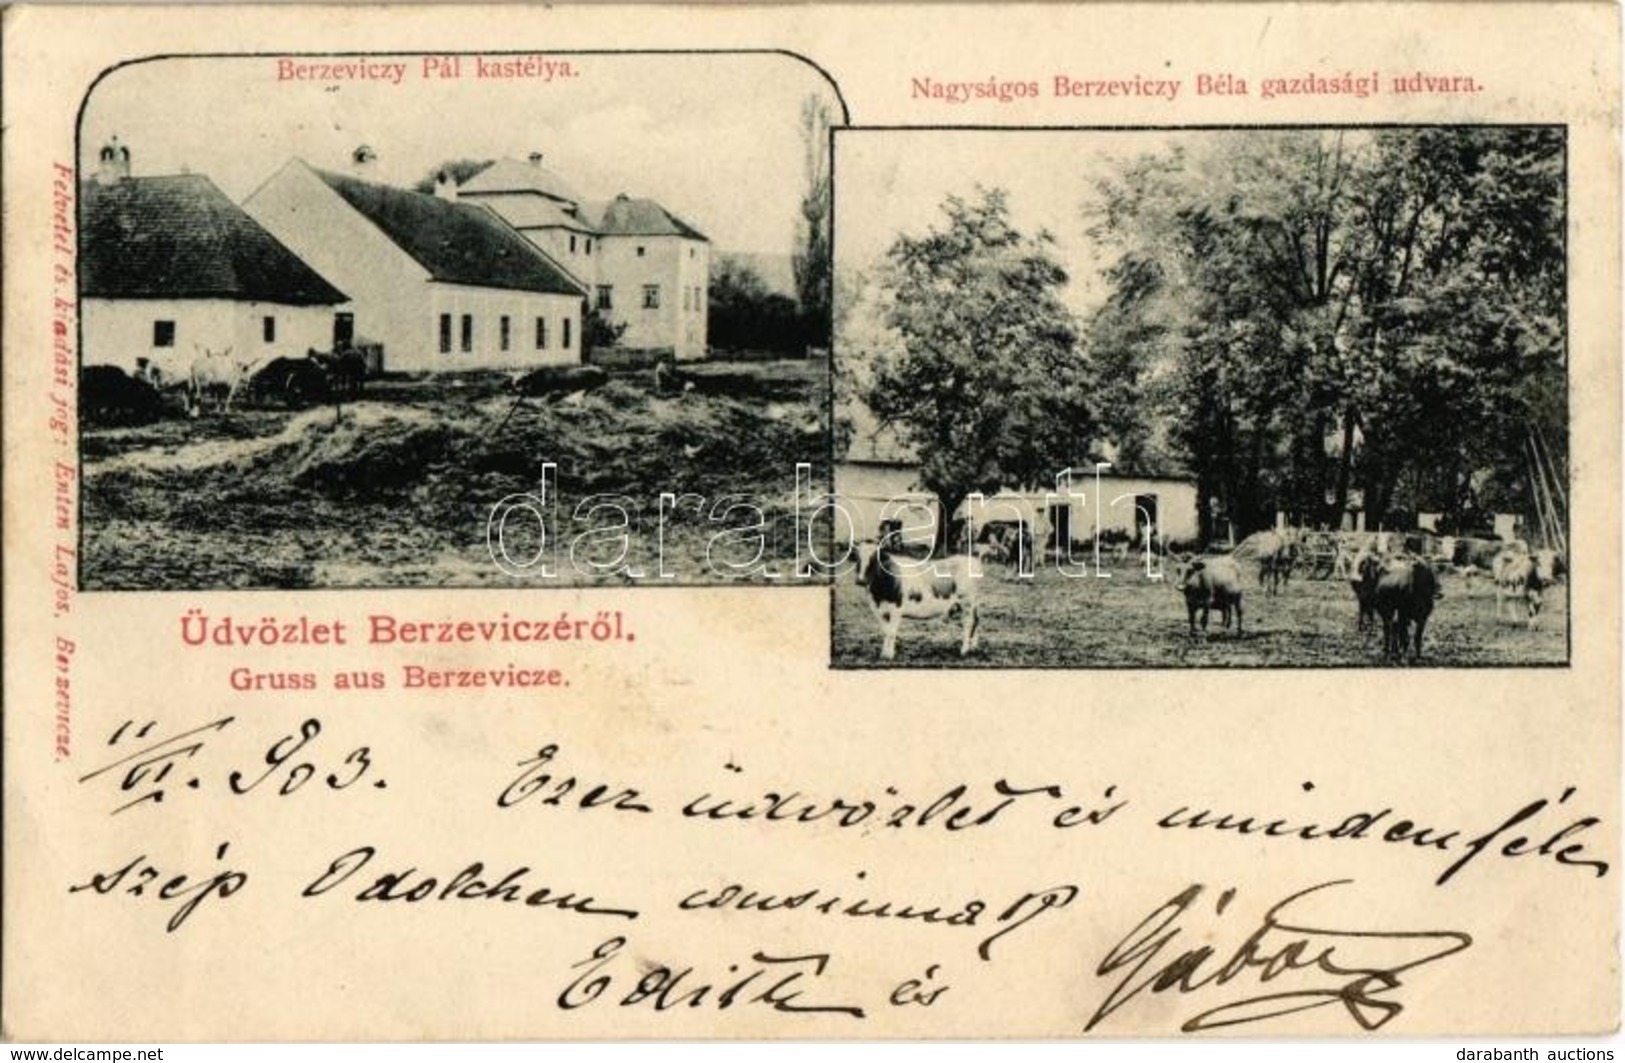 Berzeviczy Pál kastélya.
Nagyságos Berzeviczy Béla gazdasági udvara.
Felvetel és kiadási jog: Enten Lajos, Berzevicze.
darabanth
Üdvözlet Berzeviczéről.
Gruss aus Berzevicze.
11/VI. 903. Ezer üdvözlet és mindenféle
szép Odolchen cousinnak
Edith és Gábor
darabanth auctions
www.delcampe.net